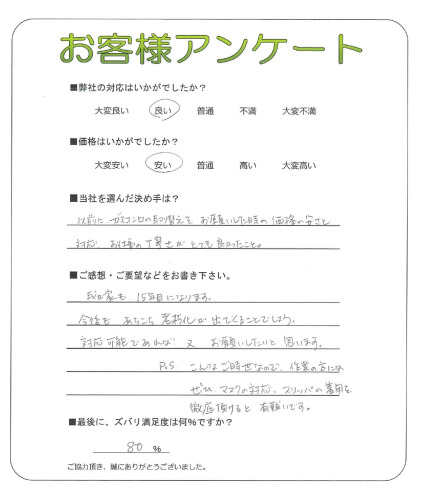 お客様アンケート
■弊社の対応はいかがでしたか？
大変良い 良い 普通 不満 大変不満
■価格はいかがでしたか？
大変安い 安い 普通 高い 大変高い
■当社を選んだ決め手は？
以前に ガスコンロの取り替えで お願いした時の 価格の安さと
対応、お仕事の丁寧さが とても 良かったこと。
■ご感想・ご要望などをお書き下さい。
我が家も 15年目になります。
今後も あちこち 老朽化が 出てくることでしょう。
対応可能であれば 又 お願いしたいと 思います。
P.S こんなご時世なので、作業の方には
ぜひ マスクの対応、スリッパの着用を
徹底頂けると 有難いです。
■最後に、ズバリ満足度は何％ですか？
80 %
ご協力頂き、誠にありがとうございました。